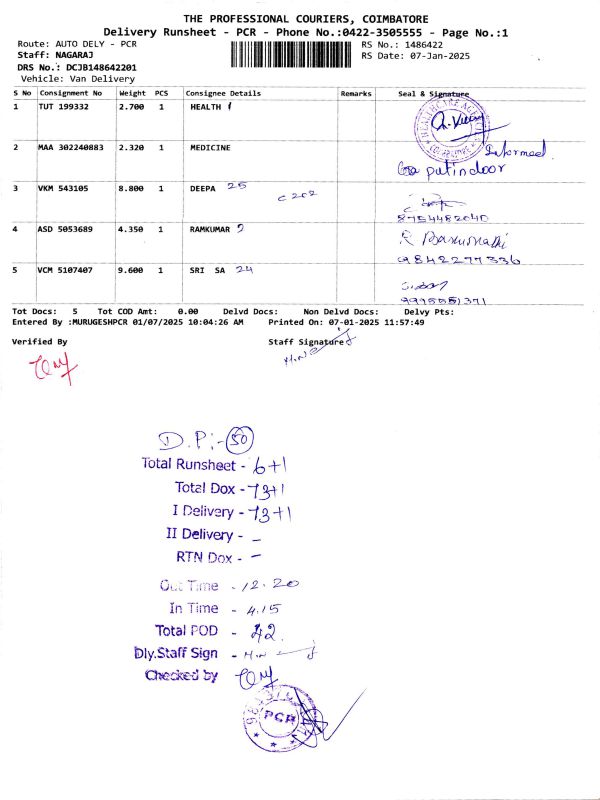 THE PROFESSIONAL COURIERS, COIMBATORE
Delivery Runsheet - PCR - Phone No.:0422-3505555 - Page No.:1
Route: AUTO DELY - PCR RS No.: 1486422
Staff: NAGARAJ RS Date: 07-Jan-2025
DRS No.: DCJB148642201
Vehicle: Van Delivery
S No Consignment No Weight PCS Consignee Details Remarks Seal & Signature
1 TUT 199332 2.700 1 HEALTH
2 MAA 302240883 2.320 1 MEDICINE
Informed
putindoor
3 VKM 543105 8.800 1 DEEPA 25 C 202
8754482040
4 ASD 5053689 4.350 1 RAMKUMAR 2
9842277336
5 VCM 5107407 9.600 1 SRI SA 24
Tot Docs: 5 Tot COD Amt: 0.00 Delvd Docs: Non Delvd Docs: Delvy Pts:
Entered By :MURUGESHPCR 01/07/2025 10:04:26 AM Printed On: 07-01-2025 11:57:49
Verified By Staff Signature
D.P:- 50
Total Runsheet - 6+1
Total Dox - 73+1
I Delivery - 73+1
II Delivery - -
RTN Dox - -
Out Time - 12.20
In Time - 4.15
Total POD - 42.
Dly.Staff Sign -
Checked by
PCR